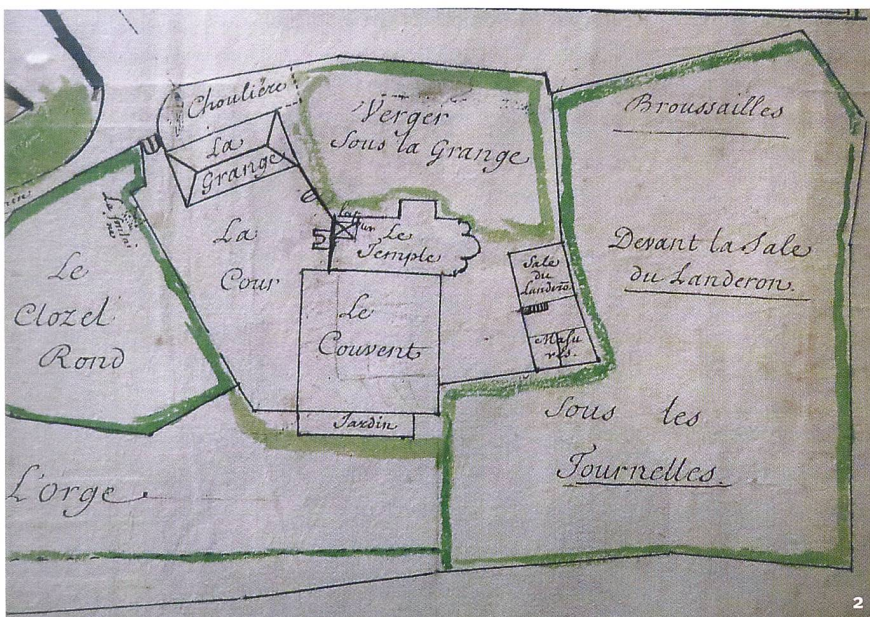 Choulière
Verger
Sous la Grange
Broussailles
La
Grange
La
Cour
la
Le
Temple
Sale
du
Landeron
Devant la Sale
du Landeron.
Le
Clozel
Rond
Le
Couvent
Masu
res.
Jardin
Sous les
Tournelles.
L'orge
2